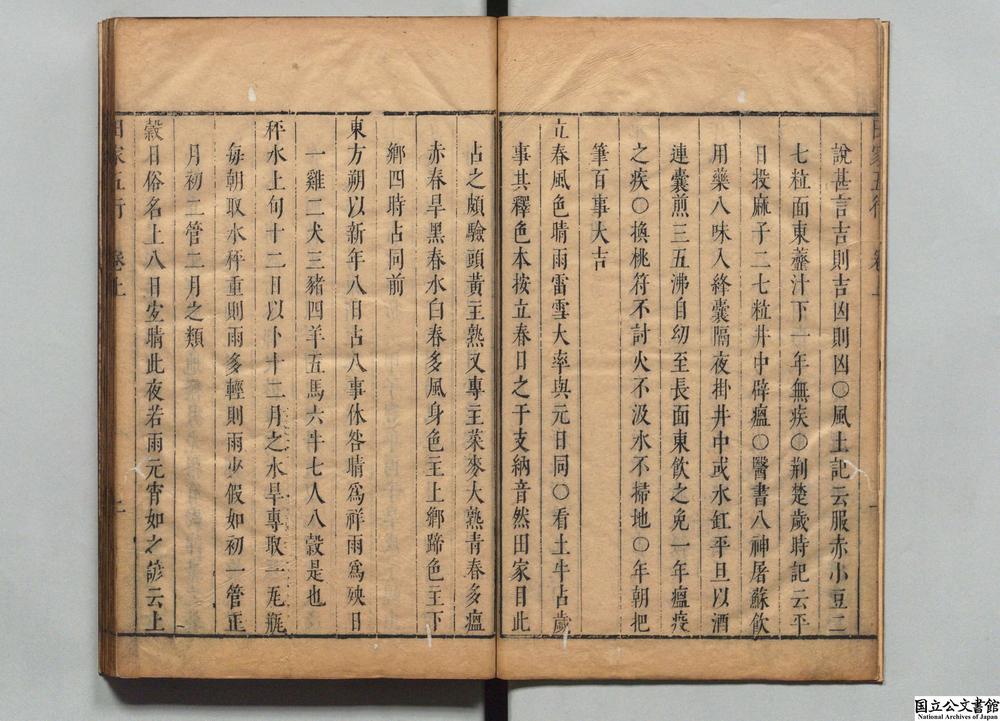 說甚言吉則吉凶則凶〇風土記云服赤小豆二
七粒面東虀汁下一年無疾〇荆楚歲時記云平
日投麻子二七粒井中辟瘟〇醫書八神屠蘇飲
用藥八味入絳囊隔夜掛井中或水缸平旦以酒
連囊煎三五沸自幼至長面東飲之免一年瘟疫
之疾〇換桃符不討火不汲水不掃地〇年朝把
筆百事大吉
立春風色晴雨雷雪大率與元日同〇看土牛占歲
事其釋色本按立春日之干支納音然田家目此
占之頗驗頭黃主熟又專主菜麥大熟青春多瘟
赤春旱黑春水白春多風身色主上鄉蹄色主下
鄉四時占同前
東方朔以新年八日占八事休咎晴爲祥雨爲殃日
一雞二犬三豬四羊五馬六牛七人八穀是也
秤水上旬十二日以卜十二月之水旱專取一瓦瓶
每朝取水秤重則雨多輕則雨少假如初一管正
月初二管二月之類
穀日俗名上八日宜晴此夜若雨元宵如之諺云上
田家五行 卷上
国立公文書館
National Archives of Japan